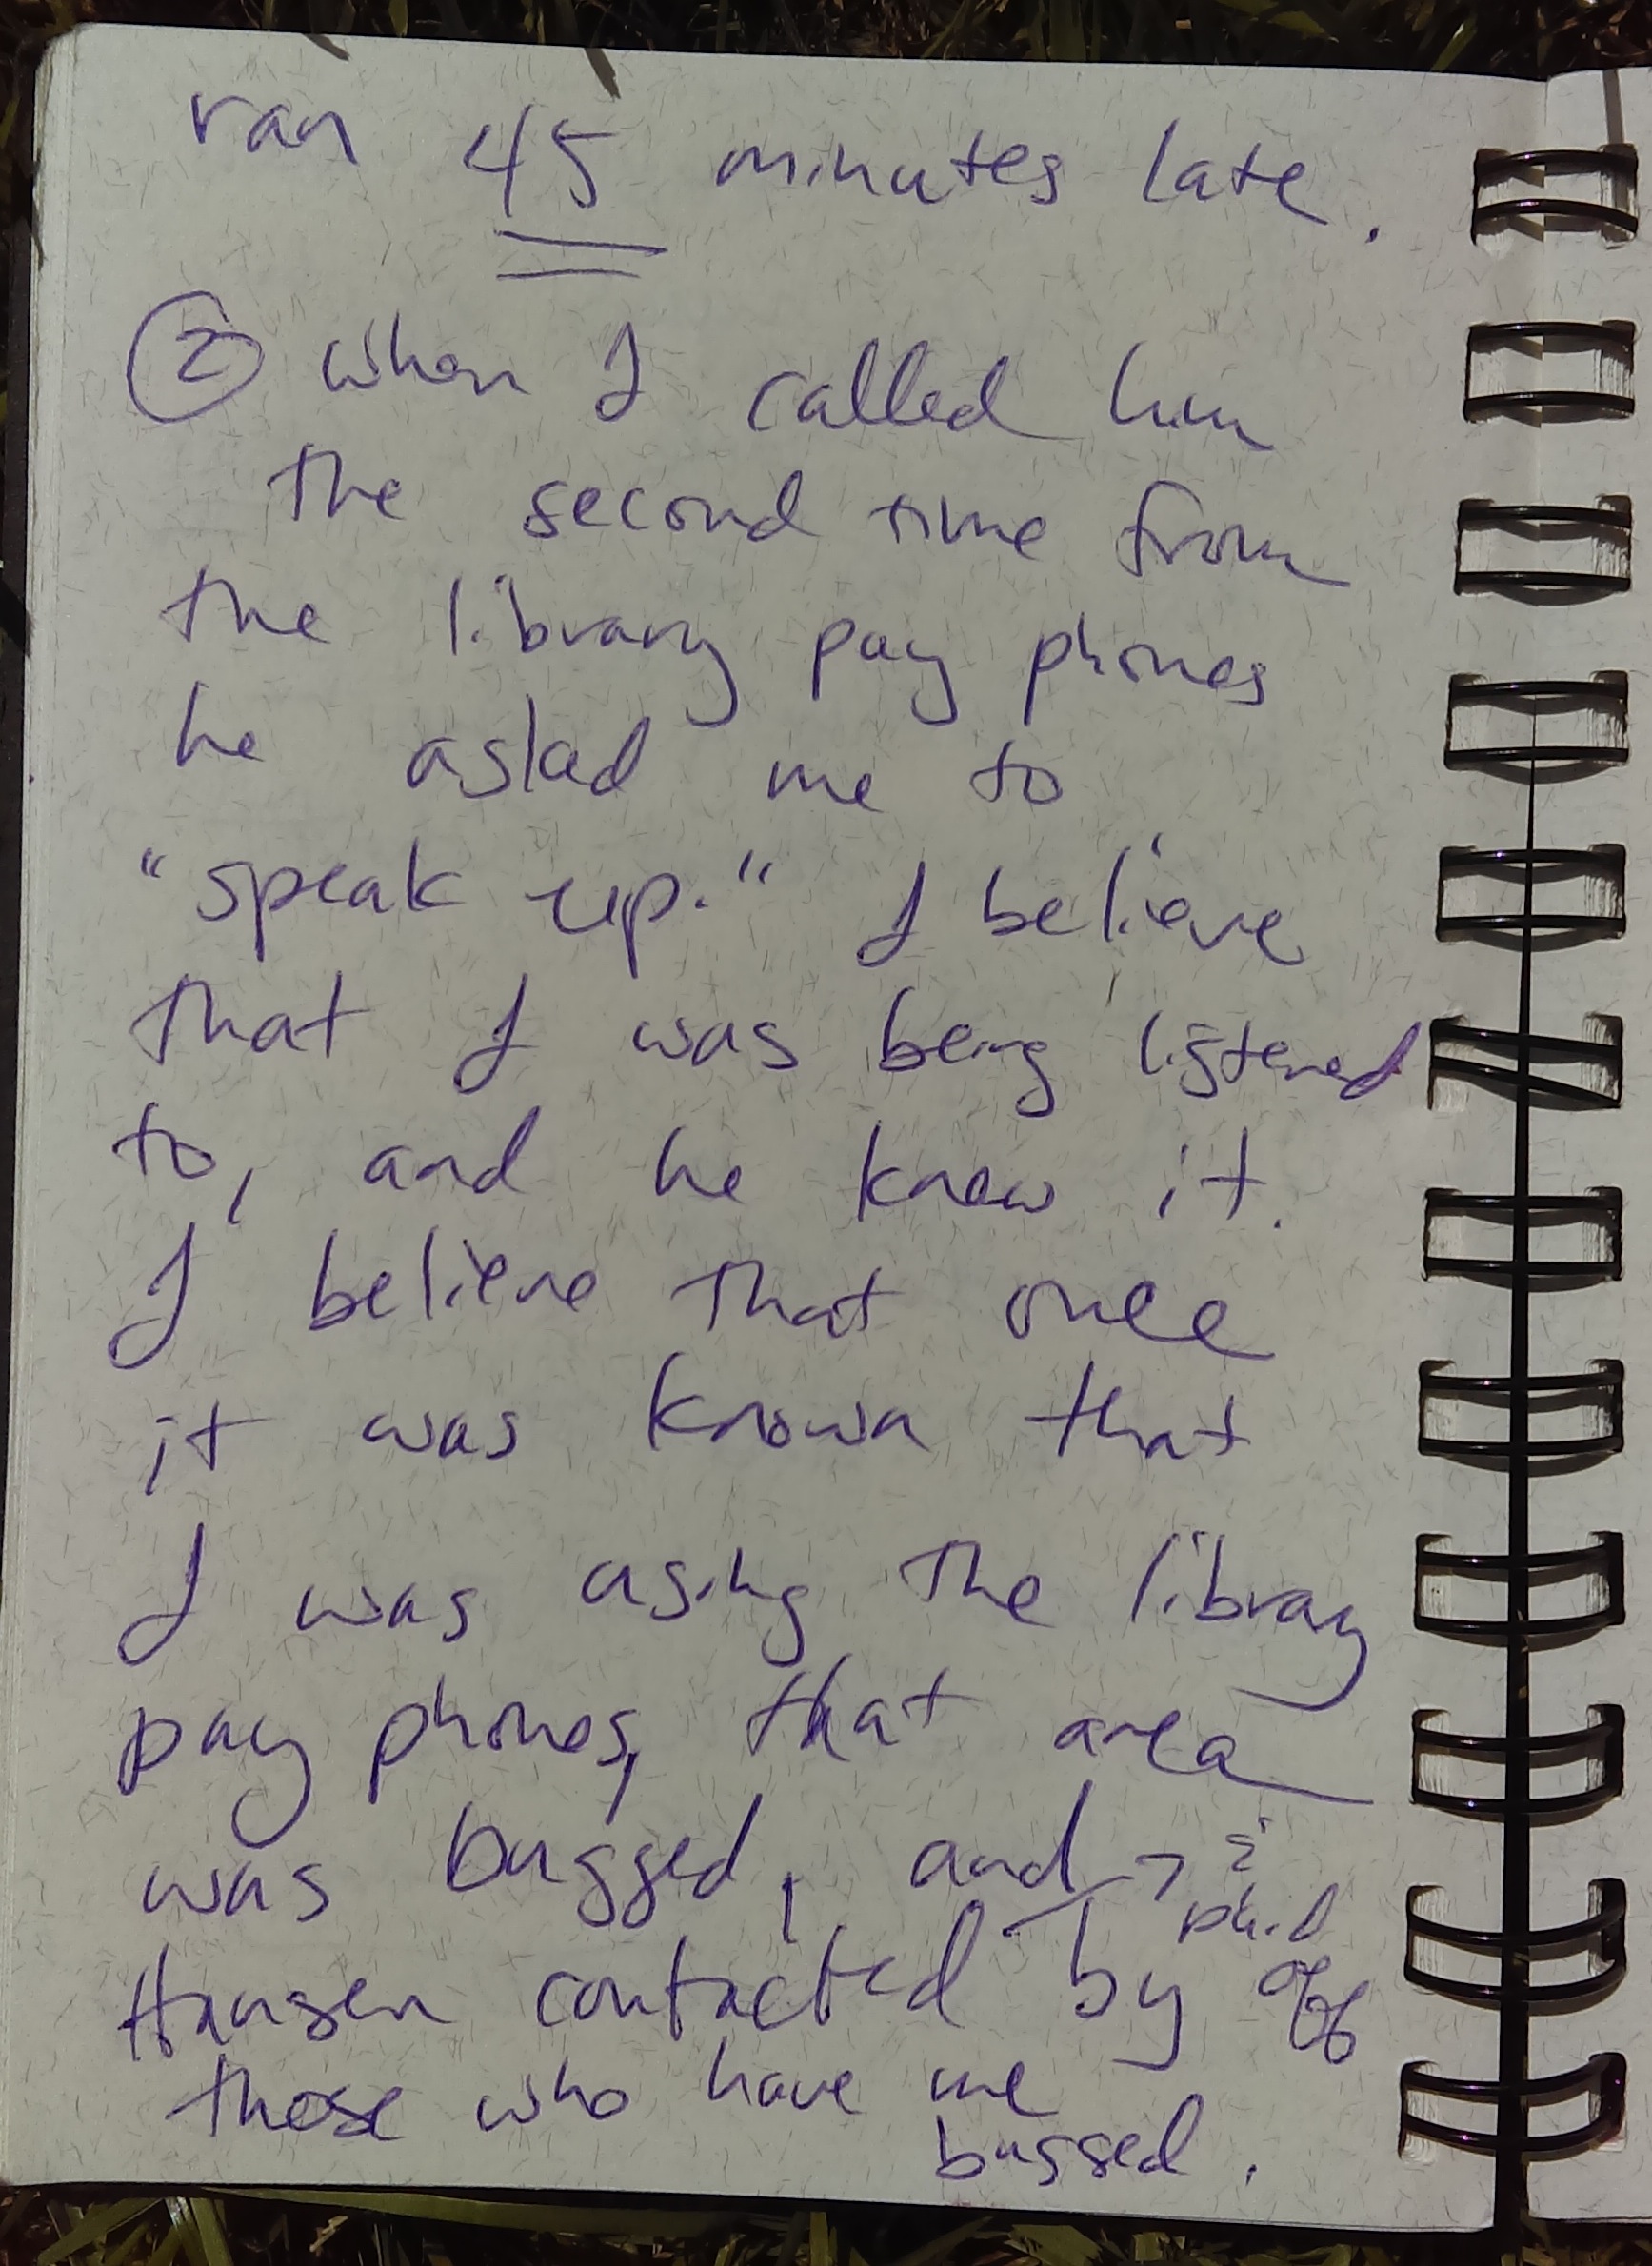 ran 45 minutes late.
② when I called him
the second time from
the library pay phones
he asked me to
"speak up." I believe
that I was being listened
to, and he knew it.
I believe that once
it was known that
I was using the library
pay phones, that area
was bugged, and → 
phil
Hansen contacted by
those who have me
bugged.